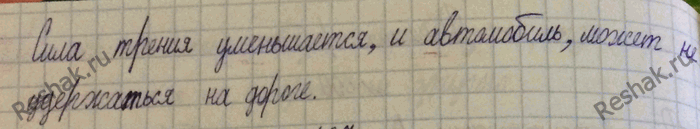 Сила трения уменьшается, и автомобиль, может не
удержаться на дороге.
Reshak.ru
Reshak.ru